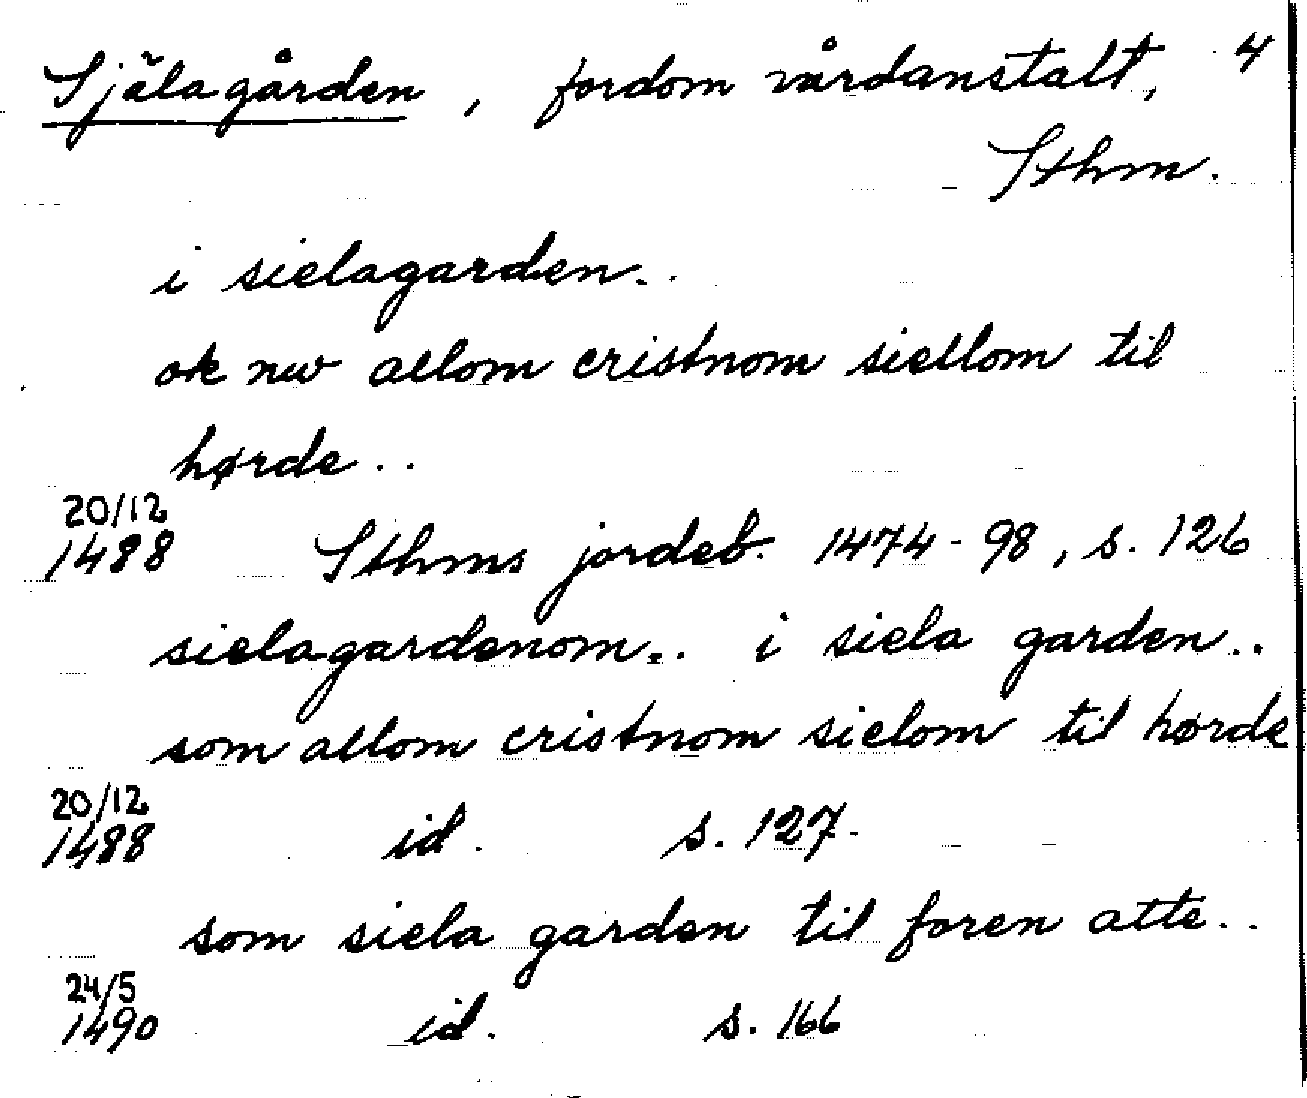 Själagården, fordom vårdanstalt, 4
Sthm.
i sielagarden..
ok nw allom cristnom siellom til
hørde..
20/12
1488 Sthms jordeb. 1474-98, s. 126
sielagardenom.. i siela garden..
som allom cristnom sielom til hørde
20/12
1488 id. s. 127
som siela garden til foren atte..
24/5
1490 id. s. 166